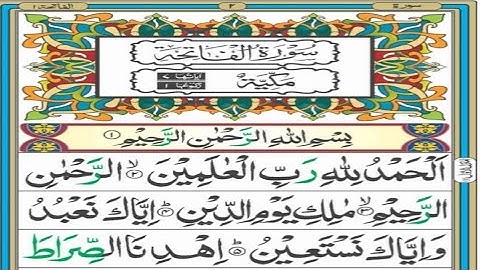 سورة ٢ الفاتحة ١
سُوْرَةُ الْفَاتِحَةِ
مَكِّيَّةٌ
اٰیَاتُهَا ٧
رُكُوْعُهَا ١
بِسْمِ اللهِ الرَّحْمٰنِ الرَّحِيْمِ ١
اَلْحَمْدُ لِلّٰهِ رَبِّ الْعٰلَمِيْنَ ٢ الرَّحْمٰنِ
الرَّحِيْمِ ٣ مٰلِكِ يَوْمِ الدِّيْنِ ٤ اِيَّاكَ نَعْبُدُ
وَاِيَّاكَ نَسْتَعِيْنُ ٥ اِهْدِنَا الصِّرَاطَ